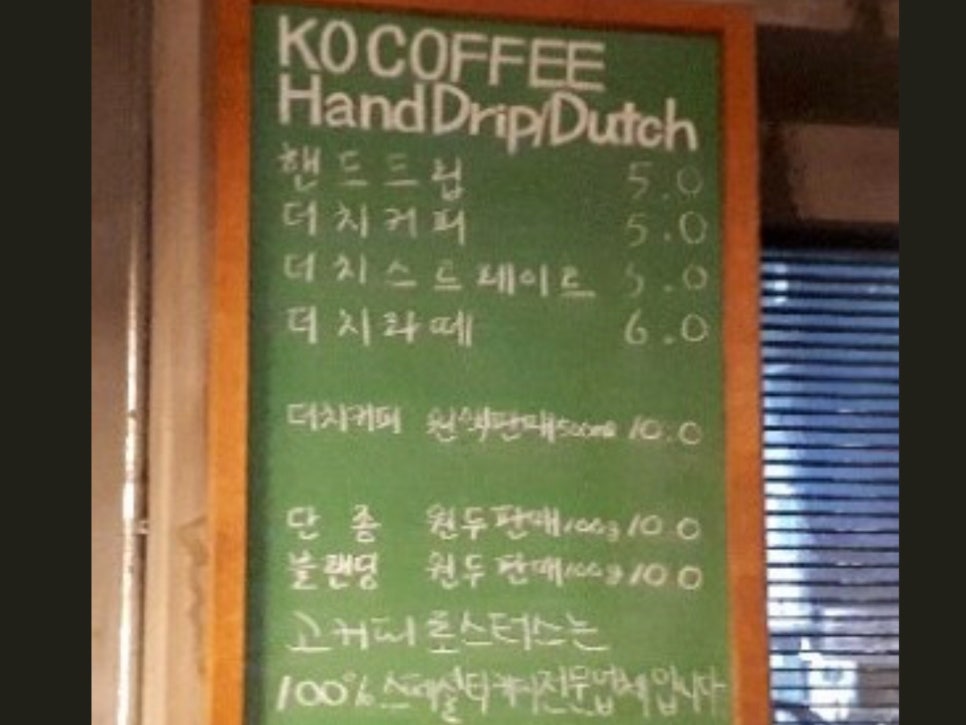 KO COFFEE
Hand Drip/Dutch
핸드드립 5.0
더치커피 5.0
더치스트레이트 5.0
더치라떼 6.0
더치커피 원액판매 500ml 10.0
단종 원두판매 100g 10.0
블랜딩 원두판매 100g 10.0
고커피로스터스는
100% 스페셜티커피전문업체입니다